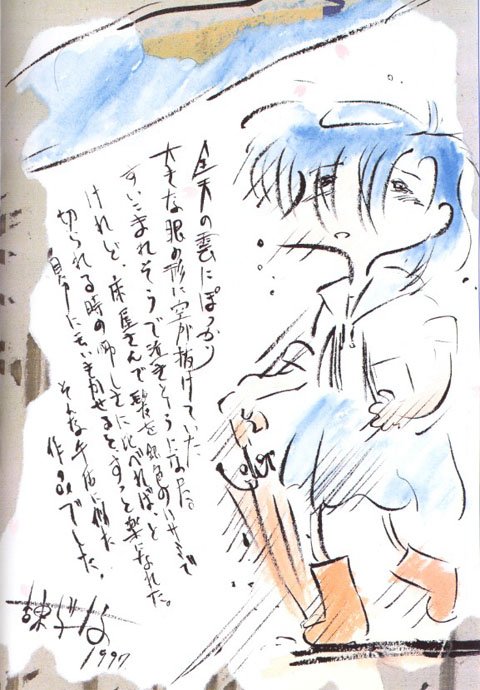 全天の雲にぽっかり
大きな眼の形に空が抜けていた
すいこまれそうで泣きそうになった。
けれど、床屋さんで髪を銀色のハサミで
切られる時の淋しさに比べればと
自分にいいきかせると、すっと楽になれた。
そんな午后に似た
作品でした。
Color
1997